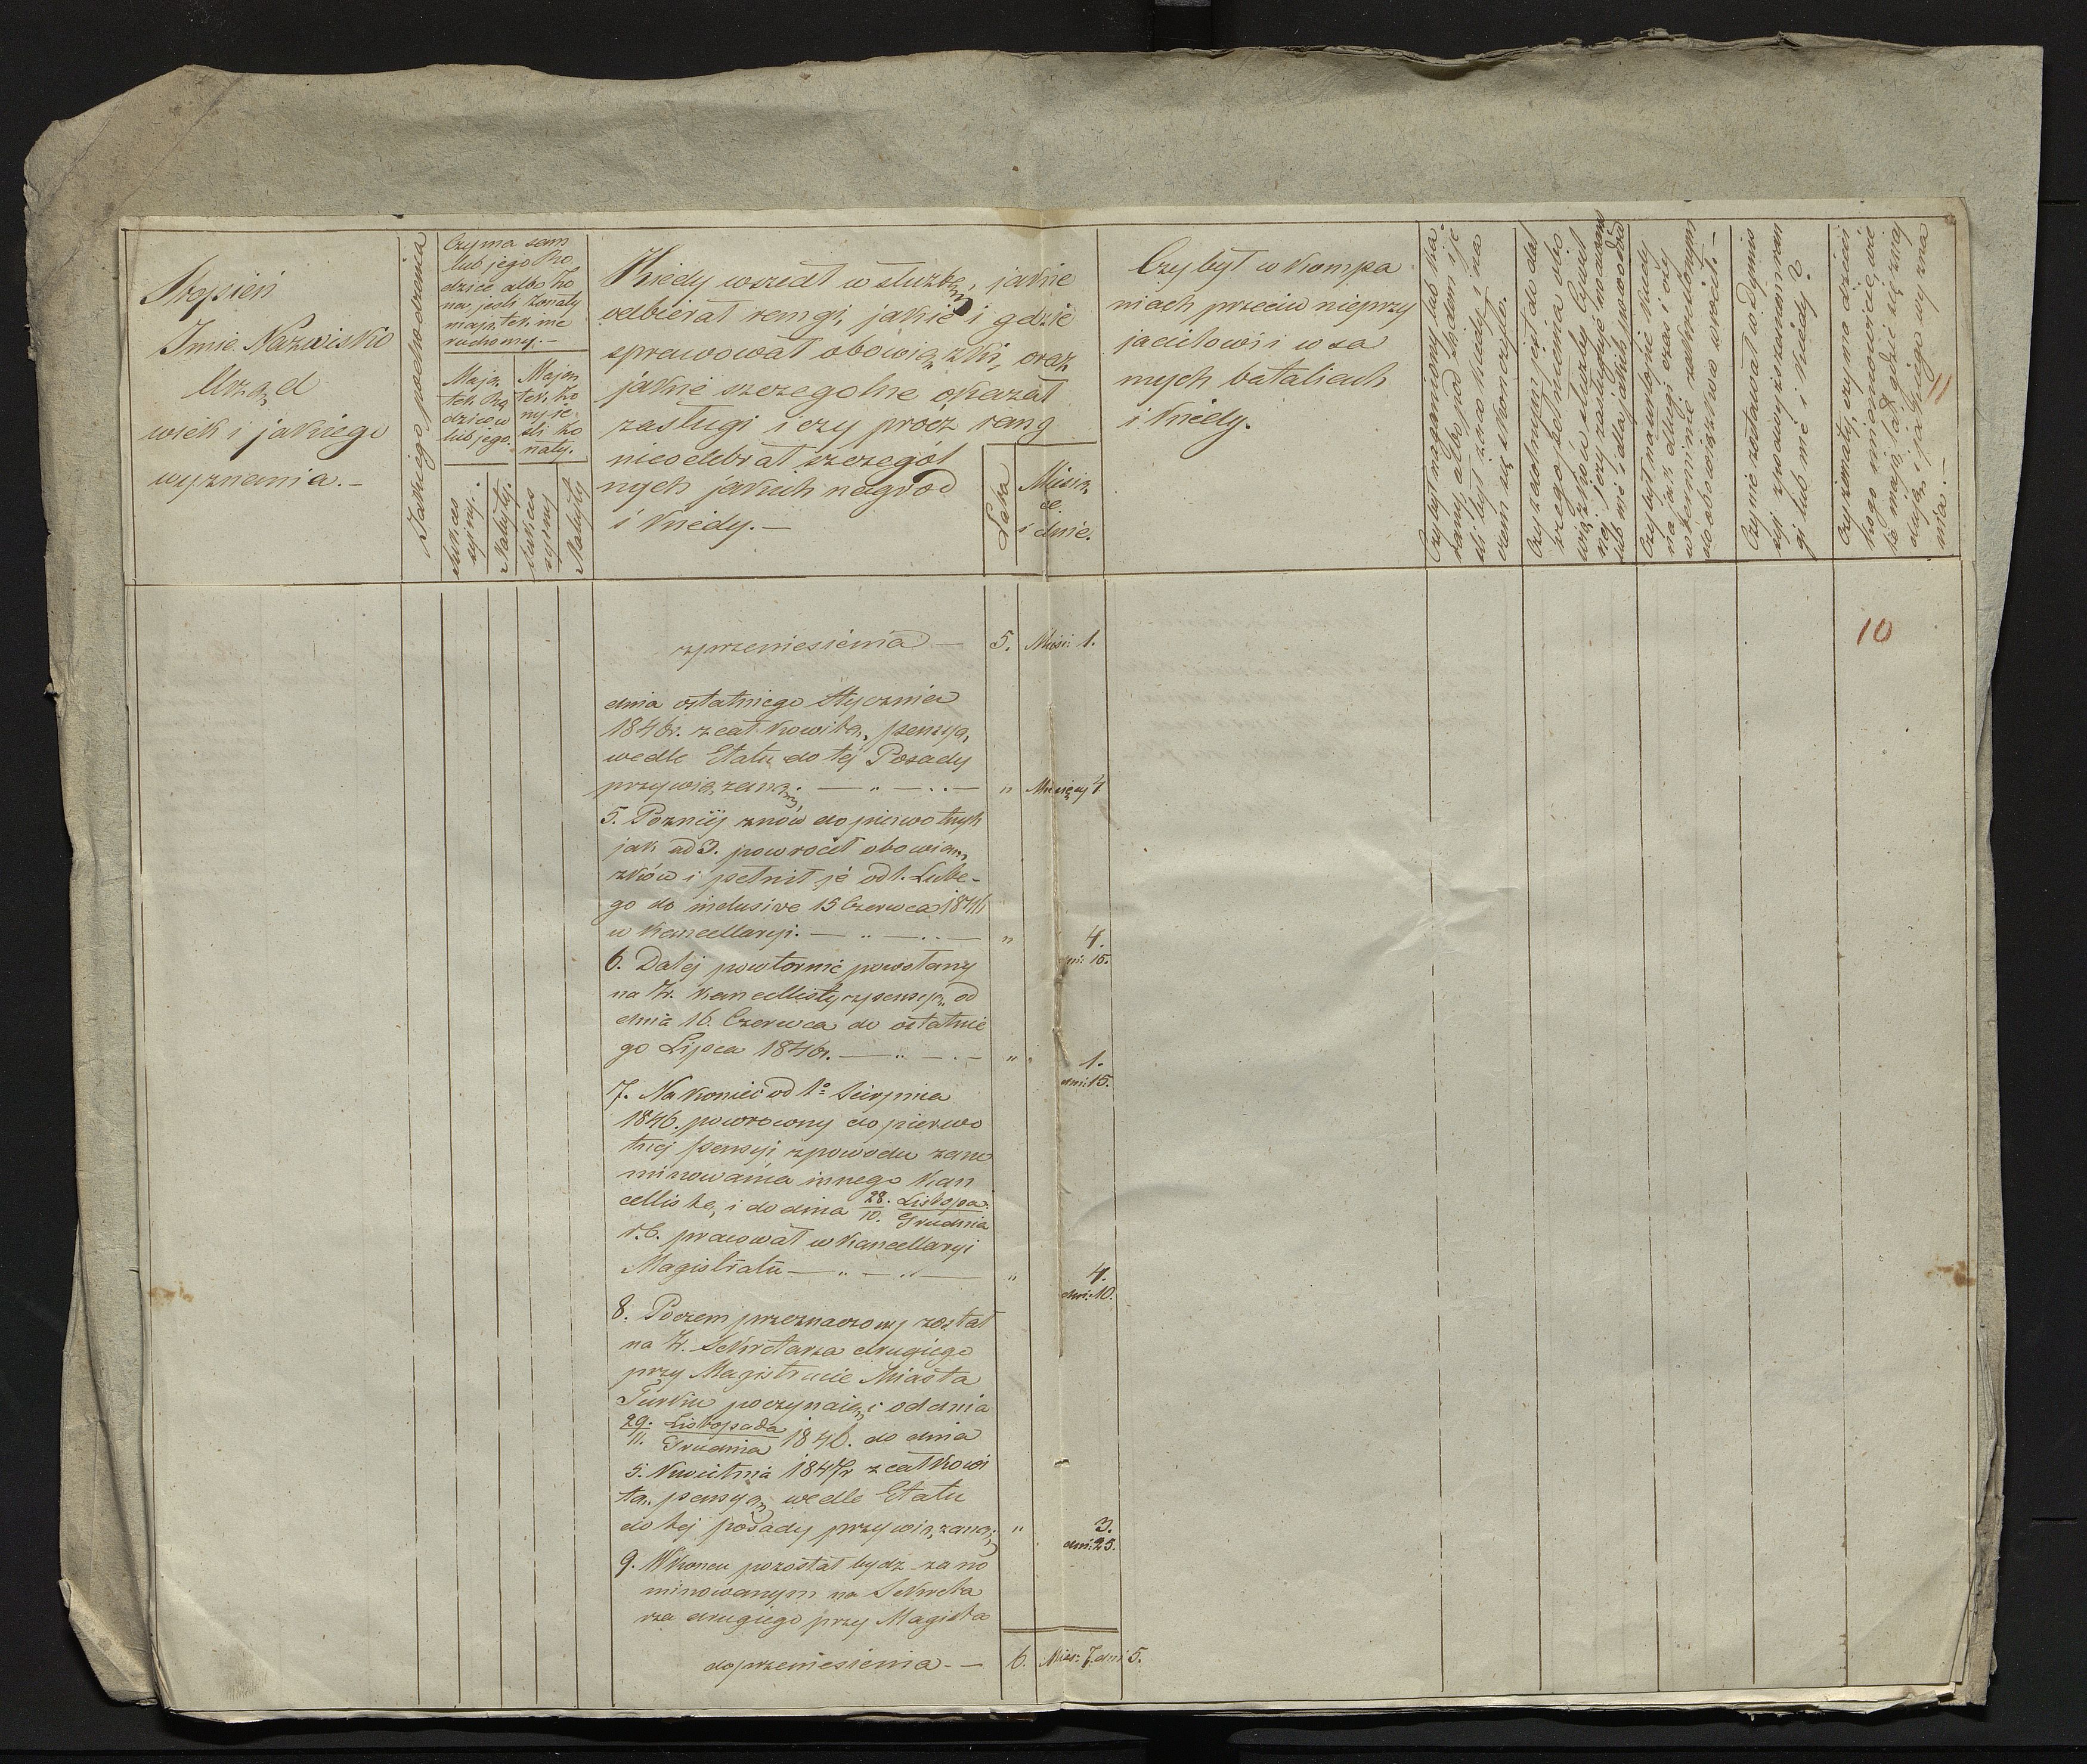 Stopień
Imie Nazwisko
Urząd
wiek i jakiego
wyznania. –
Jakiego pochodzenia
Czy ma sam
lub jego Ro
dzice albo żo
na, jesli żonaty
mają,tek nie
ruchomy. –
Mają,
tek Ro
dziców
lub jego.
Mają,
tek żo
ny je
śli żo
naty.
Sukces
syiny.
Nabyty.
Sukces
syiny
Nabyty
Kiedy wszedł w służbę, jakie
odbierał rangi, jakie i gdzie
sprawował obowiązki, oraz
jakie szczegolne okazał
zasługi i czy prócz rang
nieodebrał szczegól
nych jakich nagród
i kiedy. –
Lata
Miesią,
ce
i dnie.
Czy był w kompa
niach przeciw nieprzy
jacielowi i w sa
mych bataliach
i kiedy.
Czy był naganionym lub ka
ranym albo pod sądem i je
śli był za co kiedy i na
czem się skończyło.
Czy zdolnym jest do dal
szego pełnienia obo
wiązków służby Cywil
nej i czy zasługuje na awans
lub nie i dla jakich powodów
Czy był na urlopie kiedy
na jak długi czas i czy
w terminie zakreślonym
do obowiązków wrócił. –
Czy nie zostawał w Dymis
syi z podwyższeniem ran
gi lub nie i kiedy?
Czy żonaty, czy ma dzieci
kogo mianowicie, wie
le mają lat gdzie się znaj
dują, i jakiego wyzna
nia. –
11
10
z przeniesienia – 5. Miesi: 1.
dnia ostatniego Stycznia
1846r. z całkowitą, pensyą,
wedle Etatu do tej Posady
przywiązaną; – „ – „ – „ Miesięcy 4
5. Poźniej znów do pierwotnych
jak ad 3. powrócił obowią,
zków i pełnił je od 1. Lute-
go do inclusive 15 Czerwca 1846
w Kancellaryi. – „ – „ – „ 4.
dni: 15.
6. Dalej powtornie powołany
na Z. Kancellisty z pensyą, od
dnia 16. Czerwca do ostatnie
go Lipca 1846r. – „ – „ – „ 1.
dni: 15.
7. Na koniec od 1º Sierpnia
1846. powrocony do pierwo
tnej pensyi z powodu zano
minowania innego Kan
cellistę, i do dnia 28./10. Listopa:/Grudnia
r. b. pracował w Kancellaryi
Magistratu – „ – „ – „ 4.
dni: 10.
8. Poczem przeznaczony został
na Z. Sekretarza drugiego
przy Magistracie Miasta
Turku poczynaiąc od dnia
29./11. Listopada/Grudnia 1846. do dnia
5. Kwietnia 1847r z całkowi
tą, pensyą, wedle Etatu
do tej posady przywiązaną; „ 3.
dni: 25.
9. W końcu pozostał bydz zano
minowanym na Sekreta
rza drugiego przy Magistra
do przeniesienia. – 6. Mies: 7. dni 5.